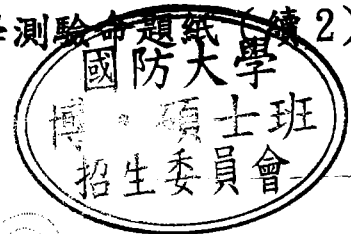 測驗命題紙(續2)
國防大學
博、碩士班
招生委員會